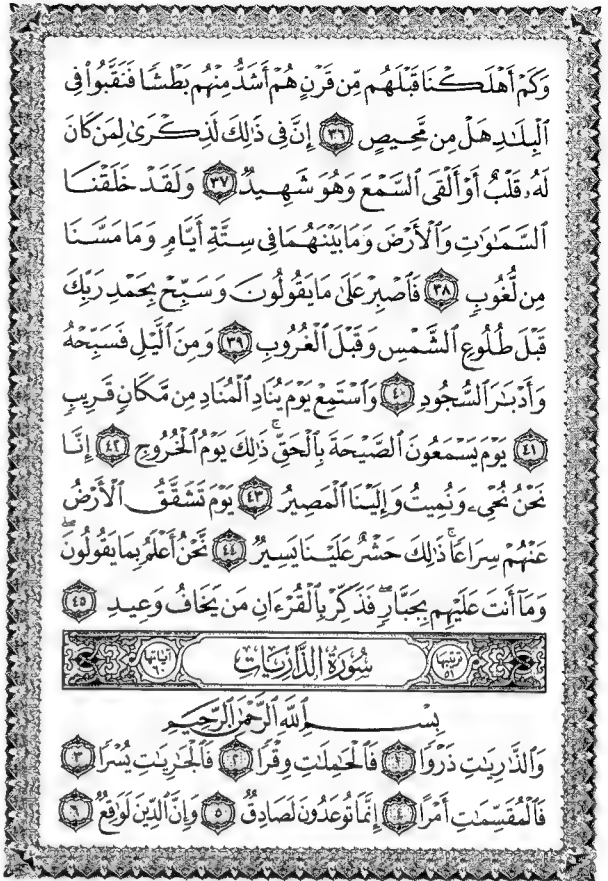 وَكَمْ أَهْلَكْنَا قَبْلَهُم مِّن قَرْنٍ هُمْ أَشَدُّ مِنْهُم بَطْشًا فَنَقَّبُوا۟ فِى
ٱلْبِلَٰدِ هَلْ مِن مَّحِيصٍ ٣٦ إِنَّ فِى ذَٰلِكَ لَذِكْرَىٰ لِمَن كَانَ
لَهُۥ قَلْبٌ أَوْ أَلْقَى ٱلسَّمْعَ وَهُوَ شَهِيدٌ ٣٧ وَلَقَدْ خَلَقْنَا
ٱلسَّمَٰوَٰتِ وَٱلْأَرْضَ وَمَا بَيْنَهُمَا فِى سِتَّةِ أَيَّامٍ وَمَا مَسَّنَا
مِن لُّغُوبٍ ٣٨ فَٱصْبِرْ عَلَىٰ مَا يَقُولُونَ وَسَبِّحْ بِحَمْدِ رَبِّكَ
قَبْلَ طُلُوعِ ٱلشَّمْسِ وَقَبْلَ ٱلْغُرُوبِ ٣٩ وَمِنَ ٱلَّيْلِ فَسَبِّحْهُ
وَأَدْبَٰرَ ٱلسُّجُودِ ٤٠ وَٱسْتَمِعْ يَوْمَ يُنَادِ ٱلْمُنَادِ مِن مَّكَانٍ قَرِيبٍ
٤١ يَوْمَ يَسْمَعُونَ ٱلصَّيْحَةَ بِٱلْحَقِّ ۚ ذَٰلِكَ يَوْمُ ٱلْخُرُوجِ ٤٢ إِنَّا
نَحْنُ نُحْىِۦ وَنُمِيتُ وَإِلَيْنَا ٱلْمَصِيرُ ٤٣ يَوْمَ تَشَقَّقُ ٱلْأَرْضُ
عَنْهُمْ سِرَاعًا ۚ ذَٰلِكَ حَشْرٌ عَلَيْنَا يَسِيرٌ ٤٤ نَّحْنُ أَعْلَمُ بِمَا يَقُولُونَ ۖ
وَمَآ أَنتَ عَلَيْهِم بِجَبَّارٍ ۖ فَذَكِّرْ بِٱلْقُرْءَانِ مَن يَخَافُ وَعِيدِ ٤٥
ترتيبها ٥١ سُورَةُ الذَّارِيَاتِ آياتها ٦٠
بِسْمِ ٱللَّهِ ٱلرَّحْمَٰنِ ٱلرَّحِيمِ
وَٱلذَّٰرِيَٰتِ ذَرْوًا ١ فَٱلْحَٰمِلَٰتِ وِقْرًا ٢ فَٱلْجَٰرِيَٰتِ يُسْرًا ٣
فَٱلْمُقَسِّمَٰتِ أَمْرًا ٤ إِنَّمَا تُوعَدُونَ لَصَادِقٌ ٥ وَإِنَّ ٱلدِّينَ لَوَٰقِعٌ ٦